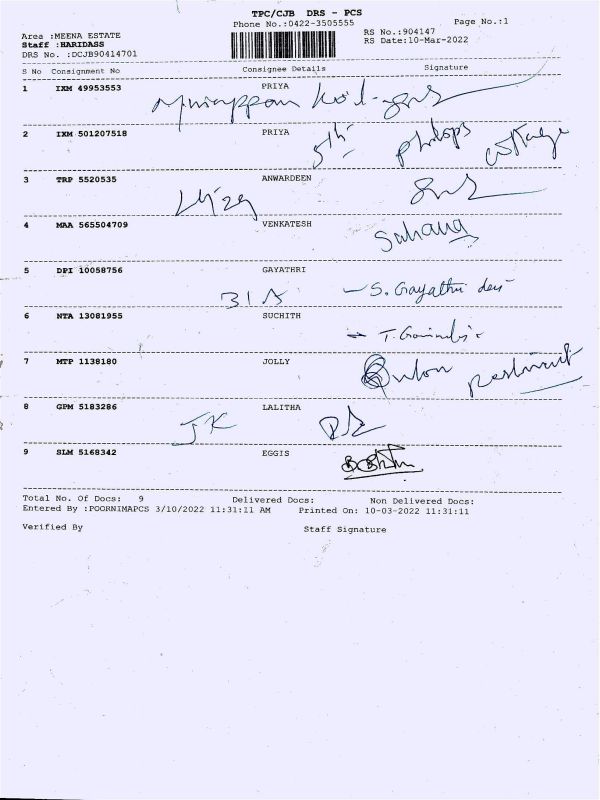 TPC/CJB DRS - PCS
Phone No.:0422-3505555 Page No.:1
Area :MEENA ESTATE RS No.:904147
Staff :HARIDASS RS Date:10-Mar-2022
DRS No. :DCJB90414701
S No Consignment No Consignee Details Signature
1 IXM 49953553 PRIYA
2 IXM 501207518 PRIYA
5th philops cottage
3 TRP 5520535 ANWARDEEN
4 MAA 565504709 VENKATESH
Sahana
5 DPI 10058756 GAYATHRI
31 A S. Gayathri devi
6 NTA 13081955 SUCHITH
7 MTP 1138180 JOLLY
8 GPM 5183286 LALITHA
JK
9 SLM 5168342 EGGIS
Total No. Of Docs: 9 Delivered Docs: Non Delivered Docs:
Entered By :POORNIMAPCS 3/10/2022 11:31:11 AM Printed On: 10-03-2022 11:31:11
Verified By Staff Signature